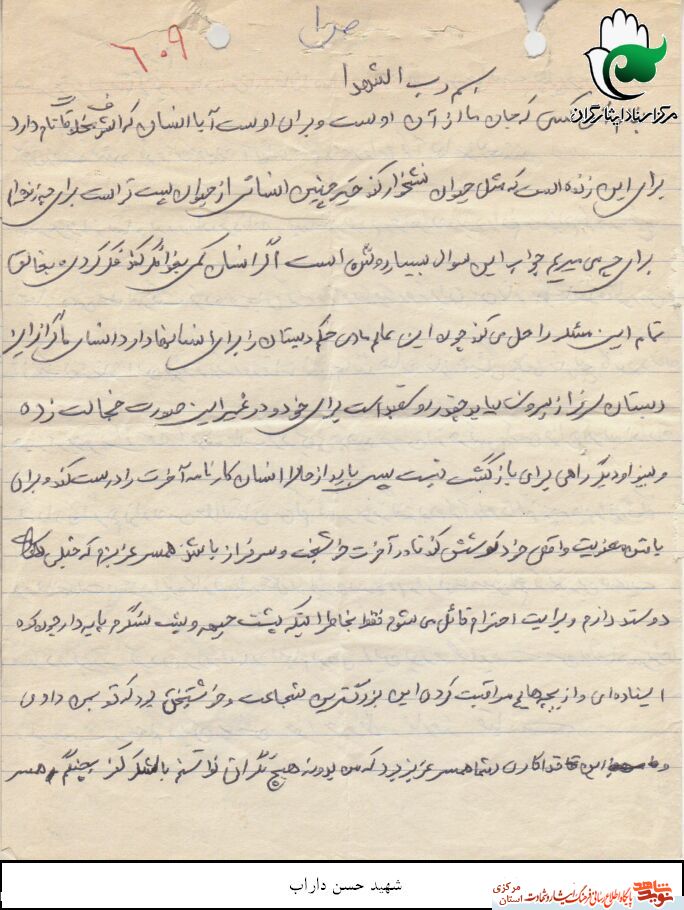 ۶۰۹
بسم رب الشهدا
مرکز اسناد ایثارگران
کسی که جان ما از آن اوست و برای اوست آیا انسان که اشرف مخلوقات نام دارد
برای این زنده است که مثل حیوان نشخوار کند خیر چنین انسانی از حیوان پست تر است برای چه زنده ایم
برای چه می میریم جواب این سوال بسیار روشن است اگر انسان کمی بخود فکر کند فکر کردن به خالق
تمام این مسئله را حل می کند چون این عالم مادی حکم دبستان را برای انسانها دارد انسان ما اگر از این
دبستان سرفراز بیرون بیاید چقدر رو سفید است برای خود و در غیر این صورت خجالت زده
و دیگر راهی برای بازگشت نیست پس باید از حالا انسان کارنامه آخرت را درست کند و برای
واقعی خود کوشش کند تا در آخرت خوشبخت و سرفراز باشد همسر عزیزم که خیلی
دوستت دارم و برایت احترام قائل می شوم فقط بخاطر اینکه پشت جبهه و پشت سنگرم پایدار چون کوه
ایستاده ای و از بچه هایم مراقبت کردی این بزرگترین شجاعت و خوشبختی بود که تو بمن دادی
و این فداکاری شما همسر عزیز بود که من بدون هیچ نگرانی توانستم با لشکر کفر بجنگم همسر
شهید حسن داراب
نوید شاهد
پایگاه اطلاع رسانی فرهنگ ایثار و شهادت استان مرکزی